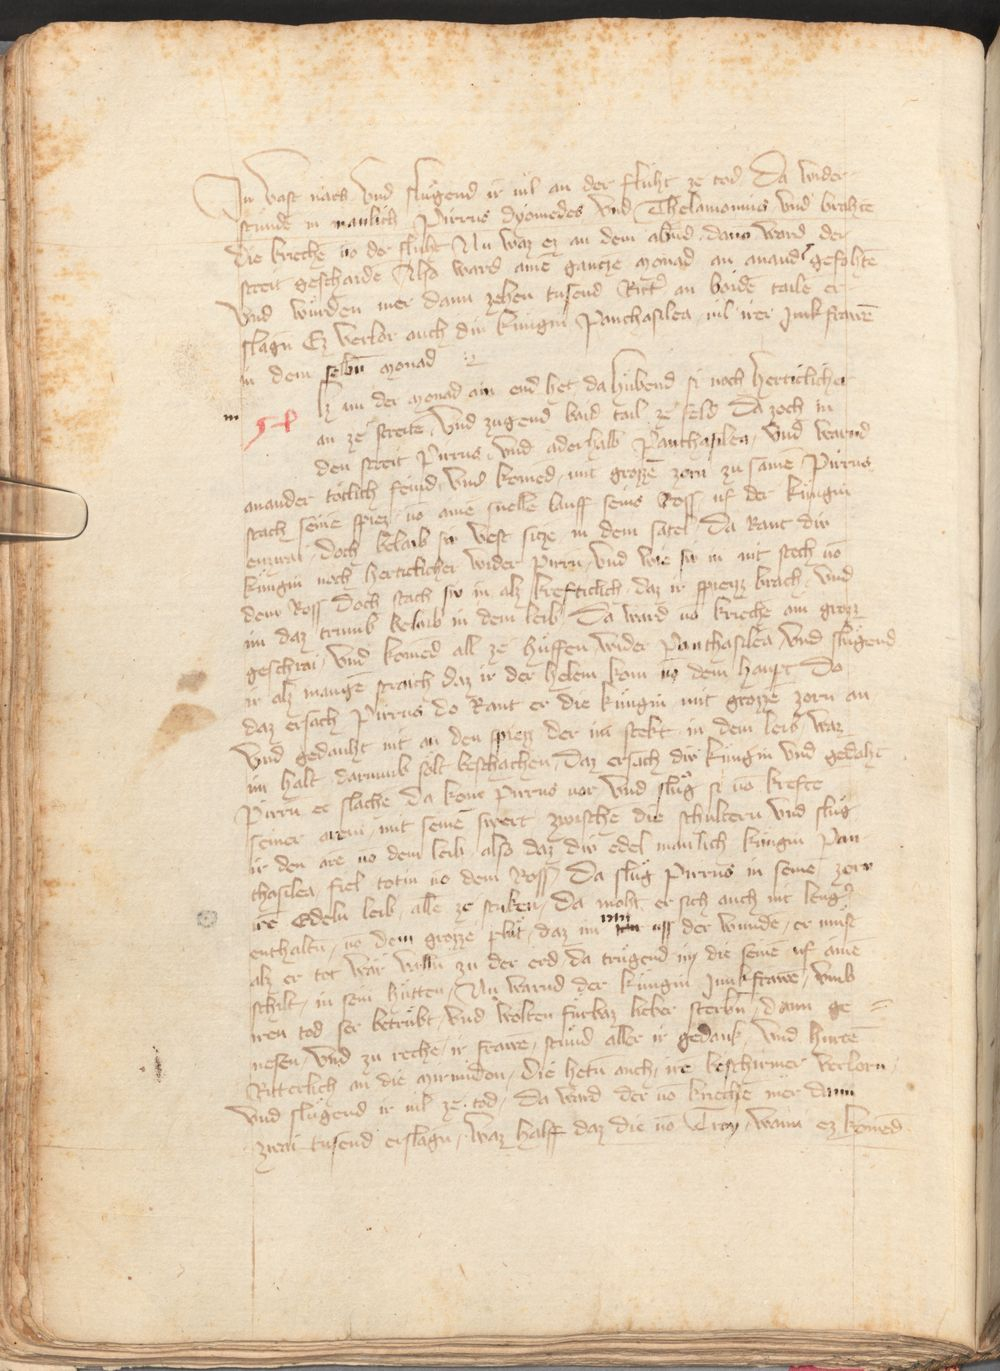 In vast nach vnd slůgend ir uil an der flůht ze tod Da wider
stůnde in manlich Pirrus dyomedes vnd Thelamonius vnd brahte
die krieche uo der flůht Nu waz ez an dem abūd dauo ward der
streit geschaide Also ward aine gancze monad an anand' gefohte
Vnd wurden mer dann zehen tusend Ritt' an baide taile er
slagn Ez verlor auch diu kungin Panthasilea uil irer junkfrawē
in dem selbn monad
Iz nu der monad ain end het da hůbend si noch herticlicher
an ze streite vnd zugend baid tail ze feld Da zoch in
den streit Pirrus vnd aderhalb Panthasilea vnd warnd
anander tötlich feind vnd komed mit grozze zorn zu same Pirrus
stach seine spiez uo aine snelle lauff seins Ross uf der kungin
enzwai doch belaib si vest size in dem satel Da Rant diu
kungin noch herticlicher wider pirru vnd wie siv in nit stach uo
dem Ross Doch stach siv in alz krefticlich daz ir spiezz brach vnd
im daz trumb belaib in dem leib Da ward uo krieche ain grozz
geschrai vnd komed all ze huffen wider Panthasilea vnd slůgend
ir alz mange straich daz ir der helem kom uo dem haupt Do
daz ersach Pirrus do Rant er die kungin mit grozze zorn an
vnd gedauht nit an den spiez der im stekt in dem leib waz
im halt darumb solt beschachen Daz ersach diu kungin vnd gedaht
Pirru ee slache Da kom Pirrus vor vnd slůg si uo krefte
seiner arem mit seine swert zwische die schultern vnd slůg
ir den are uo dem leib also daz diu edel manlich kungin Pan
thasilea fiel totin uo dem Ross Da slůg Pirrus in seine zorn
ire Edeln leib alle ze stuken Da moht er sich auch nit leng'
enthaltn uo dem grozze plůt daz im uss der wunde er můst
alz er tot wär valln zu der erd da trůgend in die seine uf aine
schilt in sein hutten Nu warnd der kungin junkfrawe vmb
iren tod ser betrůbt vnd wolten furbaz lieber sterbn dann ge
nesen vnd zu reche ir frawe stůnd aller ir gedank vnd hurte
Ritterlich an die mirmidon die hetn auch ire beschirmer verlorn
vnd slůgend ir uil ze tod da ward der uo krieche mer dann
zwai tusend erslagn waz halff daz die uo Troy wann ez komed